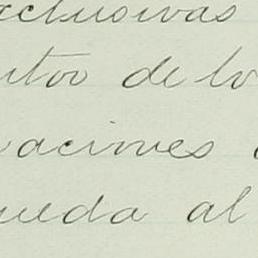 exclusivas
de lo
aciones
ueda al